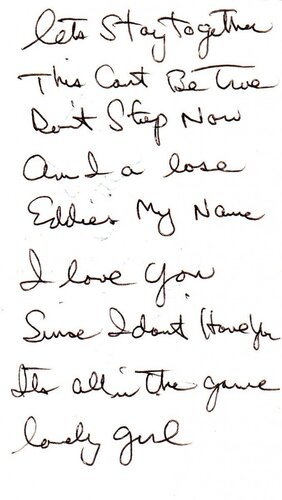 lets Stay together
This Cant Be True
Don't Stop Now
Am I a lose
Eddie's My Name
I love You
Sinse I don't Have You
Its all in the game
lovely girl